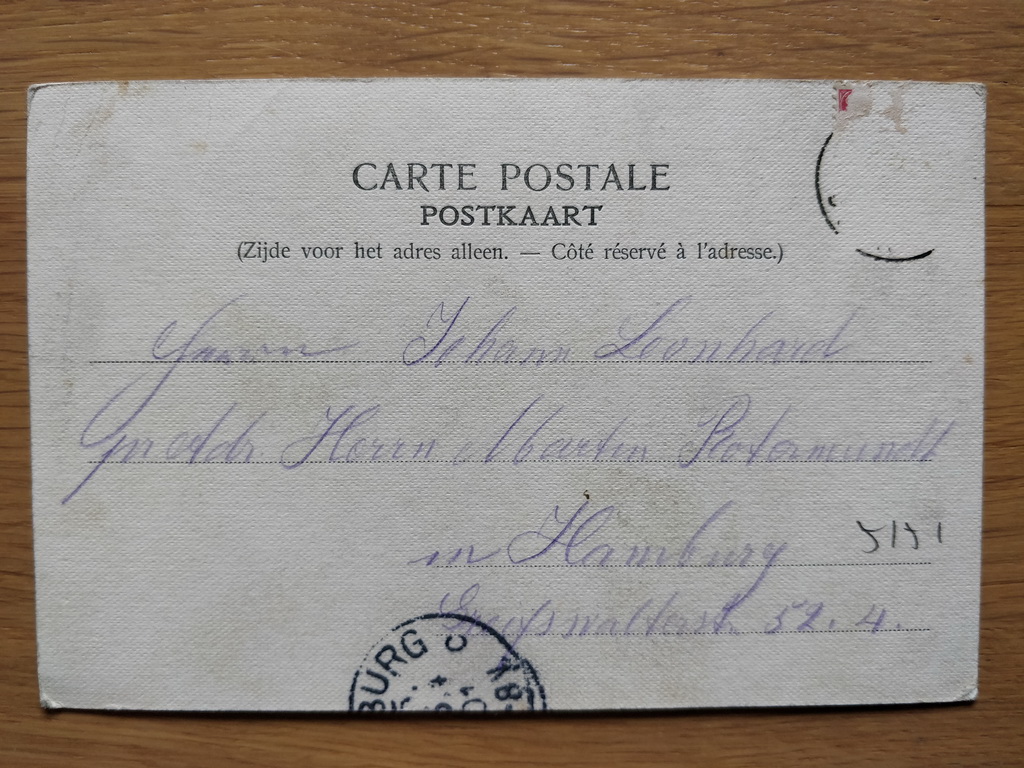 CARTE POSTALE
POSTKAART
(Zijde voor het adres alleen. — Côté réservé à l'adresse.)
Johann Leonhard
Adr. Herrn Martin
in Hamburg
Greifswalderstr. 52. 4.
BURG